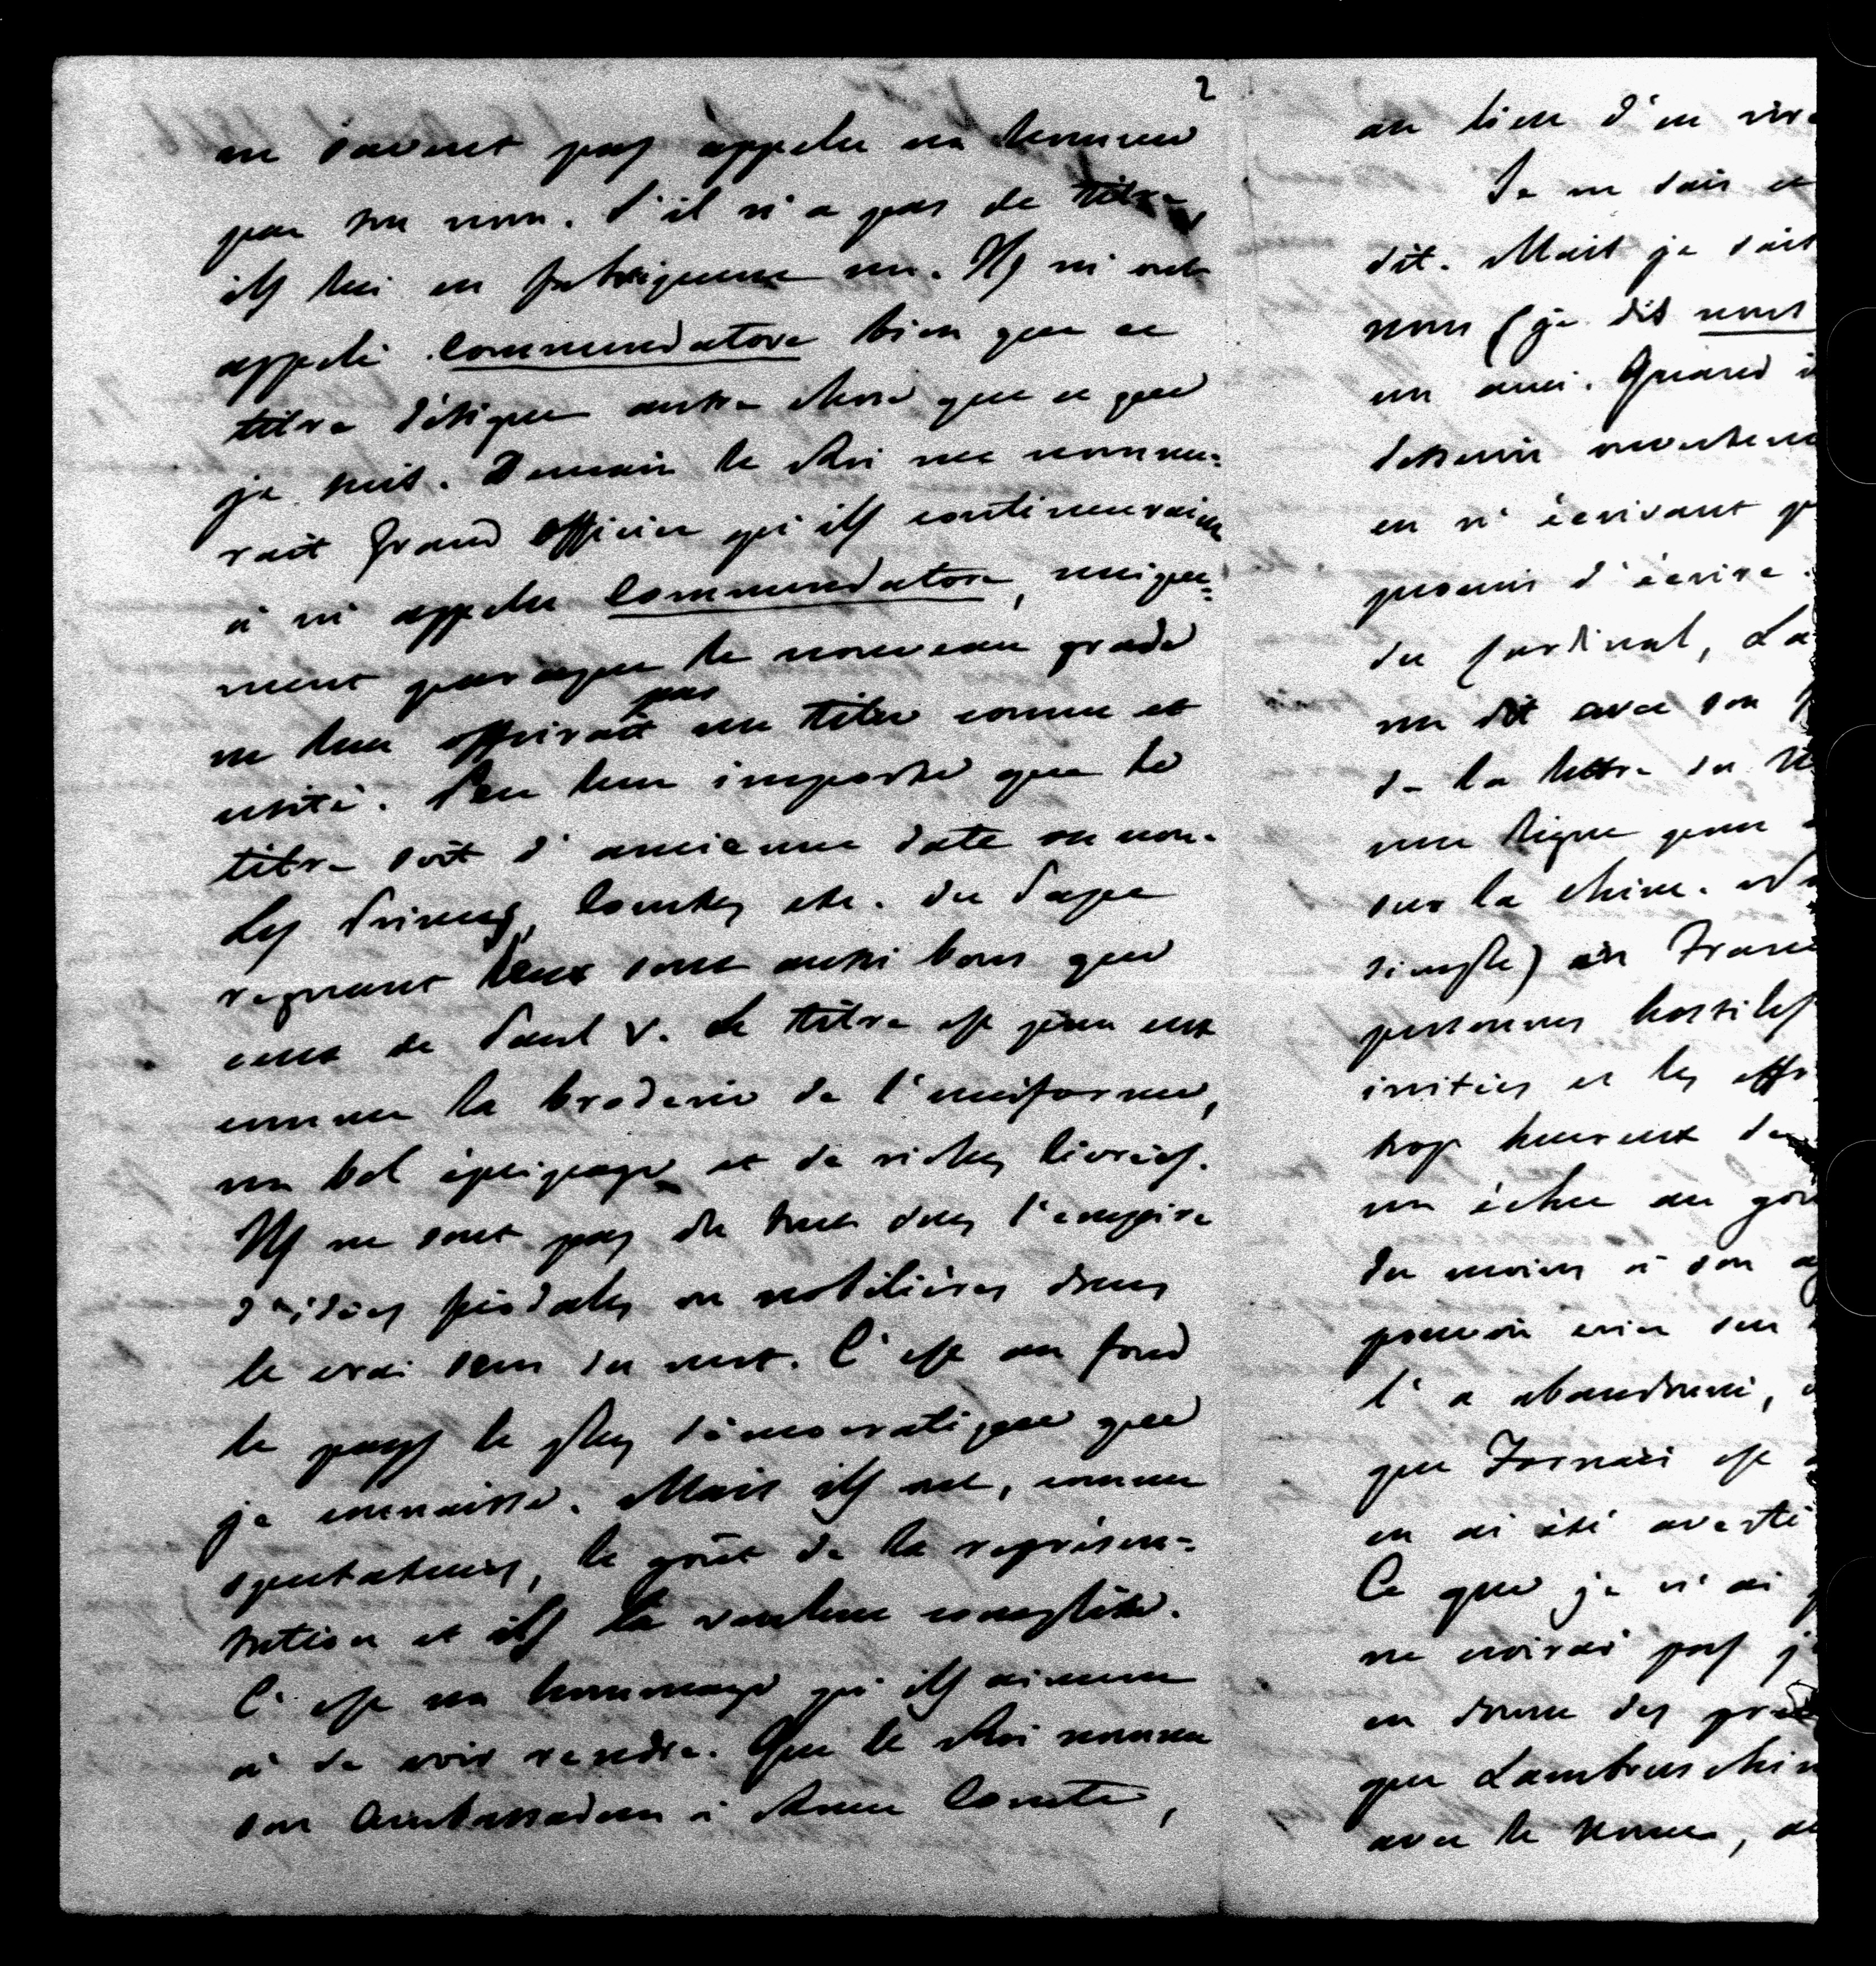 2
ne savent pas appeler un homme
par son nom. S'il n'a pas de titre,
ils lui en fabriquent un. Ils m'ont
appelé Commendatore bien que ce
titre désigne autre chose que ce que
je suis. Demain le Roi me nomme=
rait Grand officier qu'ils continueraient
à m'appeler Commendatore, unique=
ment parce que le nouveau grade
ne leur offrirait pas un titre connu et
usité. Peu leur importe que le
titre soit d'ancienne date ou non.
Les Princes, Comtes etc. du Pape
regnant sont aussi bons que
ceux de Paul V. Le titre est pour eux
comme la broderie de l'uniforme,
un bel équipage et de riches livrées.
Ils ne sont pas du tout sous l'empire
d'idées féodales ou nobilières dans
le vrai sens du mot. C'est au fond
le pays le plus démocratique que
je connaisse. Mais ils ont, comme
spectateurs, le goût de la représen=
tation et ils la veulent complète.
C'est un hommage qu'ils aiment
à se voir rendre. Que le Roi nomme
son Ambassadeur à Rome Comte,
au lieu d'en
Je ne sais
dit. Mais je sais
nous (je dis nous
un ami. Quand
dessein
en m'écrivant
promis d'écrire.
du Cardinal, La
me dit avec son
de la lettre du
une ligne pour
sur la chine.
simple) en
personnes hostiles
initiées et les
trop heureux de
un échec au
du moins à son
pouvoir crier sur
l'a abandonné,
que Fornari est
en ai été averti
Ce que je n'ai
ne croirai pas
en donne des
que Lambruschin
avec le Nonce,